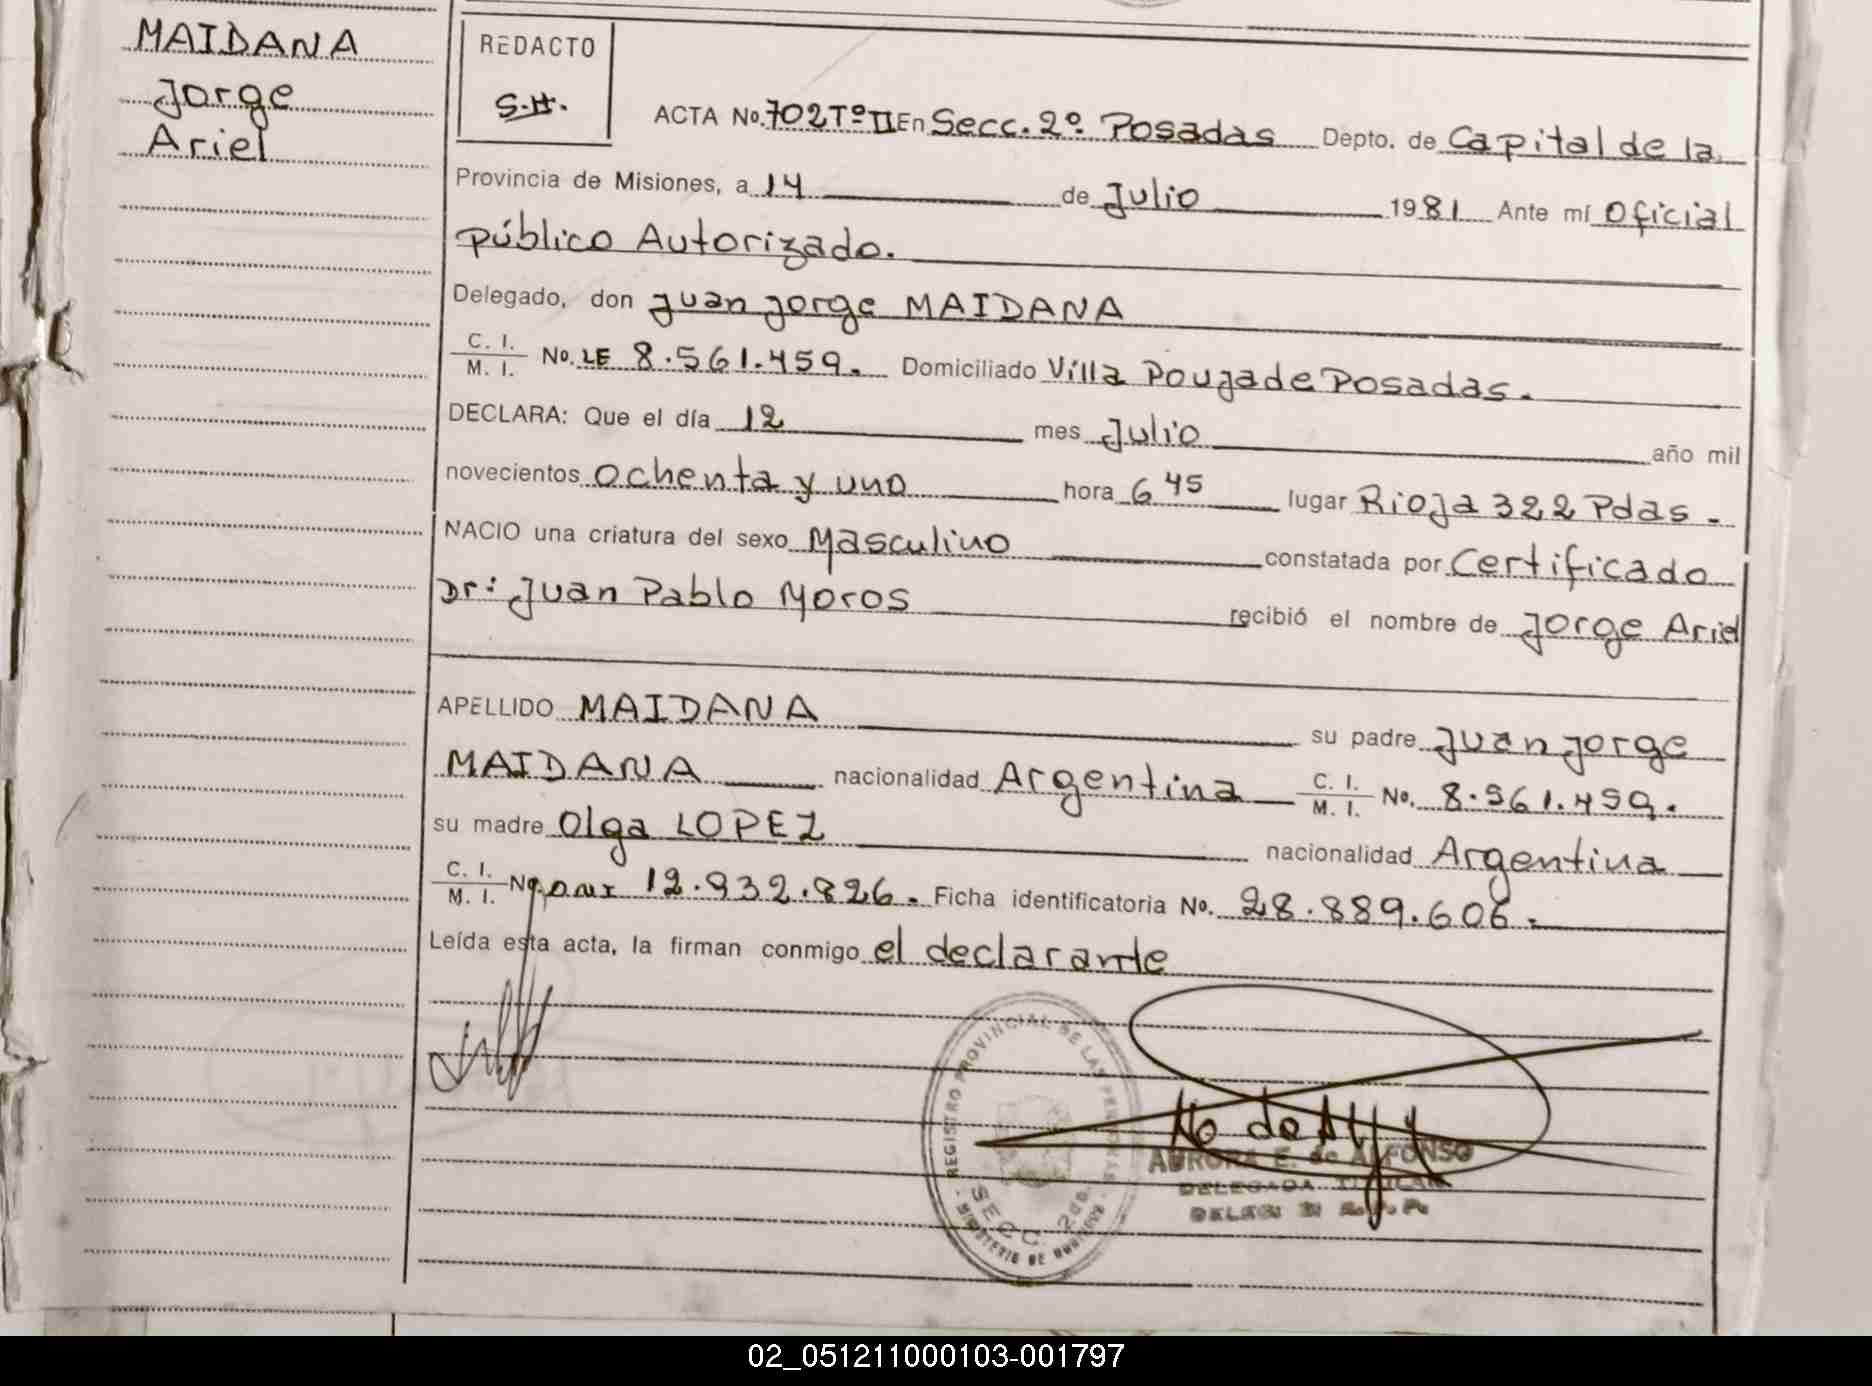 MAIDANA
Jorge
Ariel
REDACTO
S.H.
ACTA No. 702 Tº II En Secc. 2º. Posadas Depto. de Capital de la
Provincia de Misiones, a 14 de Julio 1981 Ante mí Oficial
público Autorizado.
Delegado, don Juan Jorge MAIDANA
C. I. / M. I. No. LE 8.561.459. Domiciliado Villa Poujade Posadas.
DECLARA: Que el día 12 mes Julio año mil
novecientos ochenta y uno hora 6 45 lugar Rioja 322 Pdas.
NACIO una criatura del sexo Masculino constatada por Certificado
Dr: Juan Pablo Moros recibió el nombre de Jorge Ariel
APELLIDO MAIDANA su padre Juan Jorge
MAIDANA nacionalidad Argentina C. I. / M. I. No. 8.561.459.
su madre Olga LOPEZ nacionalidad Argentina
C. I. / M. I. No. DNI 12.932.826. Ficha identificatoria No. 28.889.606.
Leída esta acta, la firman conmigo el declarante
REGISTRO PROVINCIAL DE LAS PERSONAS
SECC. 2da.
MINISTERIO DE GOBIERNO
AURORA E. de ALFONSO
DELEGADA TITULAR
02_051211000103-001797